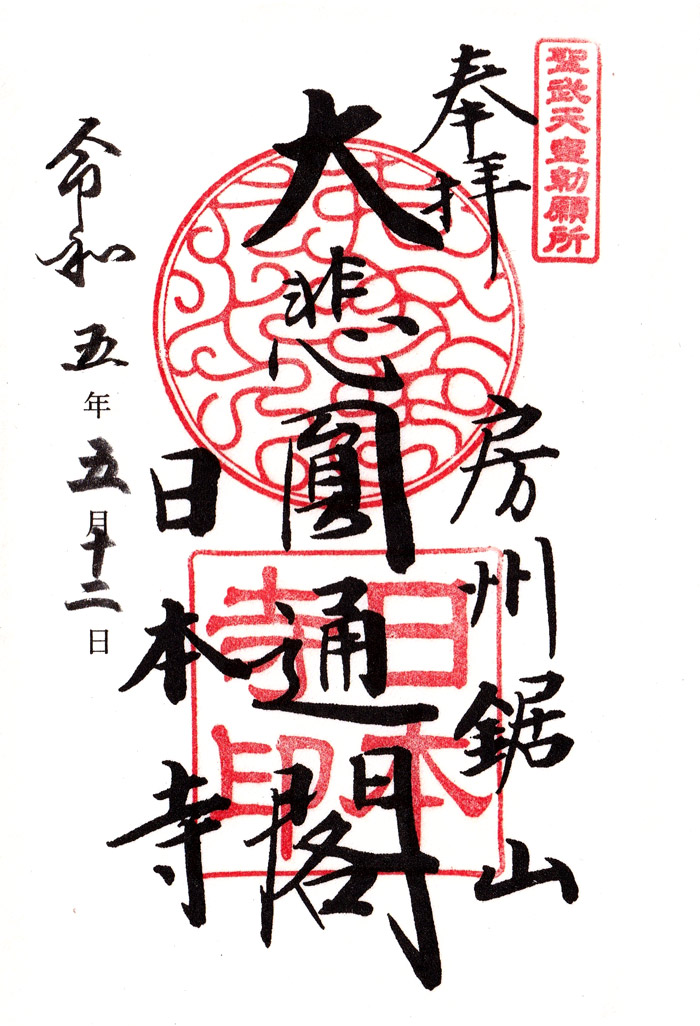 聖武天皇勅願所
奉拝
房州鋸山
大悲圓通閣
日本寺
日本寺印
令和五年五月十二日